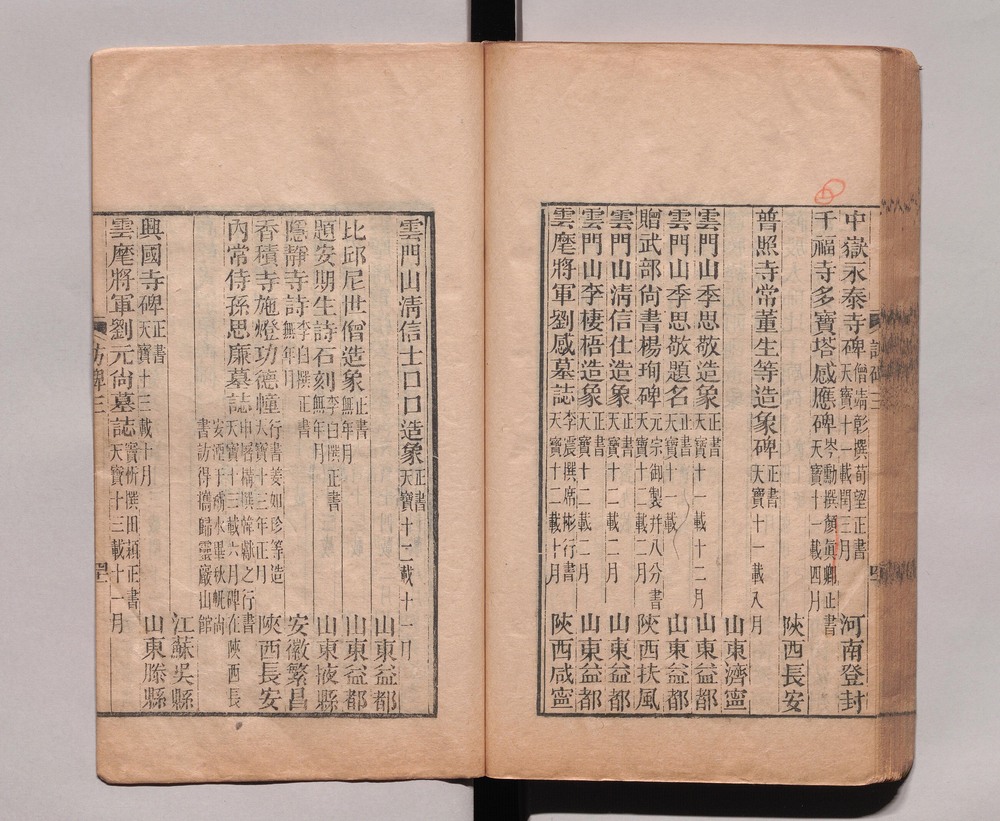 中嶽永泰寺碑 僧靖彰撰荀望正書 天寶十一載閏三月 河南登封
千福寺多寶塔感應碑 岑勳撰顏眞卿正書 天寶十一載四月 陜西長安
普照寺常董生等造象碑 正書 天寶十一載八月 山東濟寧
雲門山季思敬造象 正書 天寶十一載十二月 山東益都
雲門山季思敬題名 正書 天寶十一載 山東益都
贈武部尚書楊珣碑 元宗御製幷八分書 天寶十二載二月 陜西扶風
雲門山清信仕造象 正書 天寶十二載二月 山東益都
雲門山李棲梧造象 正書 天寶十二載二月 山東益都
雲麾將軍劉感墓誌 李震撰席彬行書 天寶十二載十月 陜西咸寧
雲門山清信士口口造象 正書 天寶十二載十一月 山東益都
比邱尼世僧造象 正書 無年月 山東益都
題安期生詩石刻 李白撰正書 無年月 山東掖縣
隱靜寺詩 李白撰正書 無年月 安徽繁昌
香積寺施燈功德幢 行書姜如珍等造 天寶十三年正月 陜西長安
內常侍孫思廉墓誌 申堂構撰韓獻之行書 天寶十三載六月碑在陜西長
安湮于滈水畢秋帆尚
書訪得攜歸靈巖山館 江蘇吳縣
興國寺碑 正書 天寶十三載十月 山東滕縣
雲麾將軍劉元尚墓誌 竇忻撰田頴正書 天寶十三載十一月
訪碑三